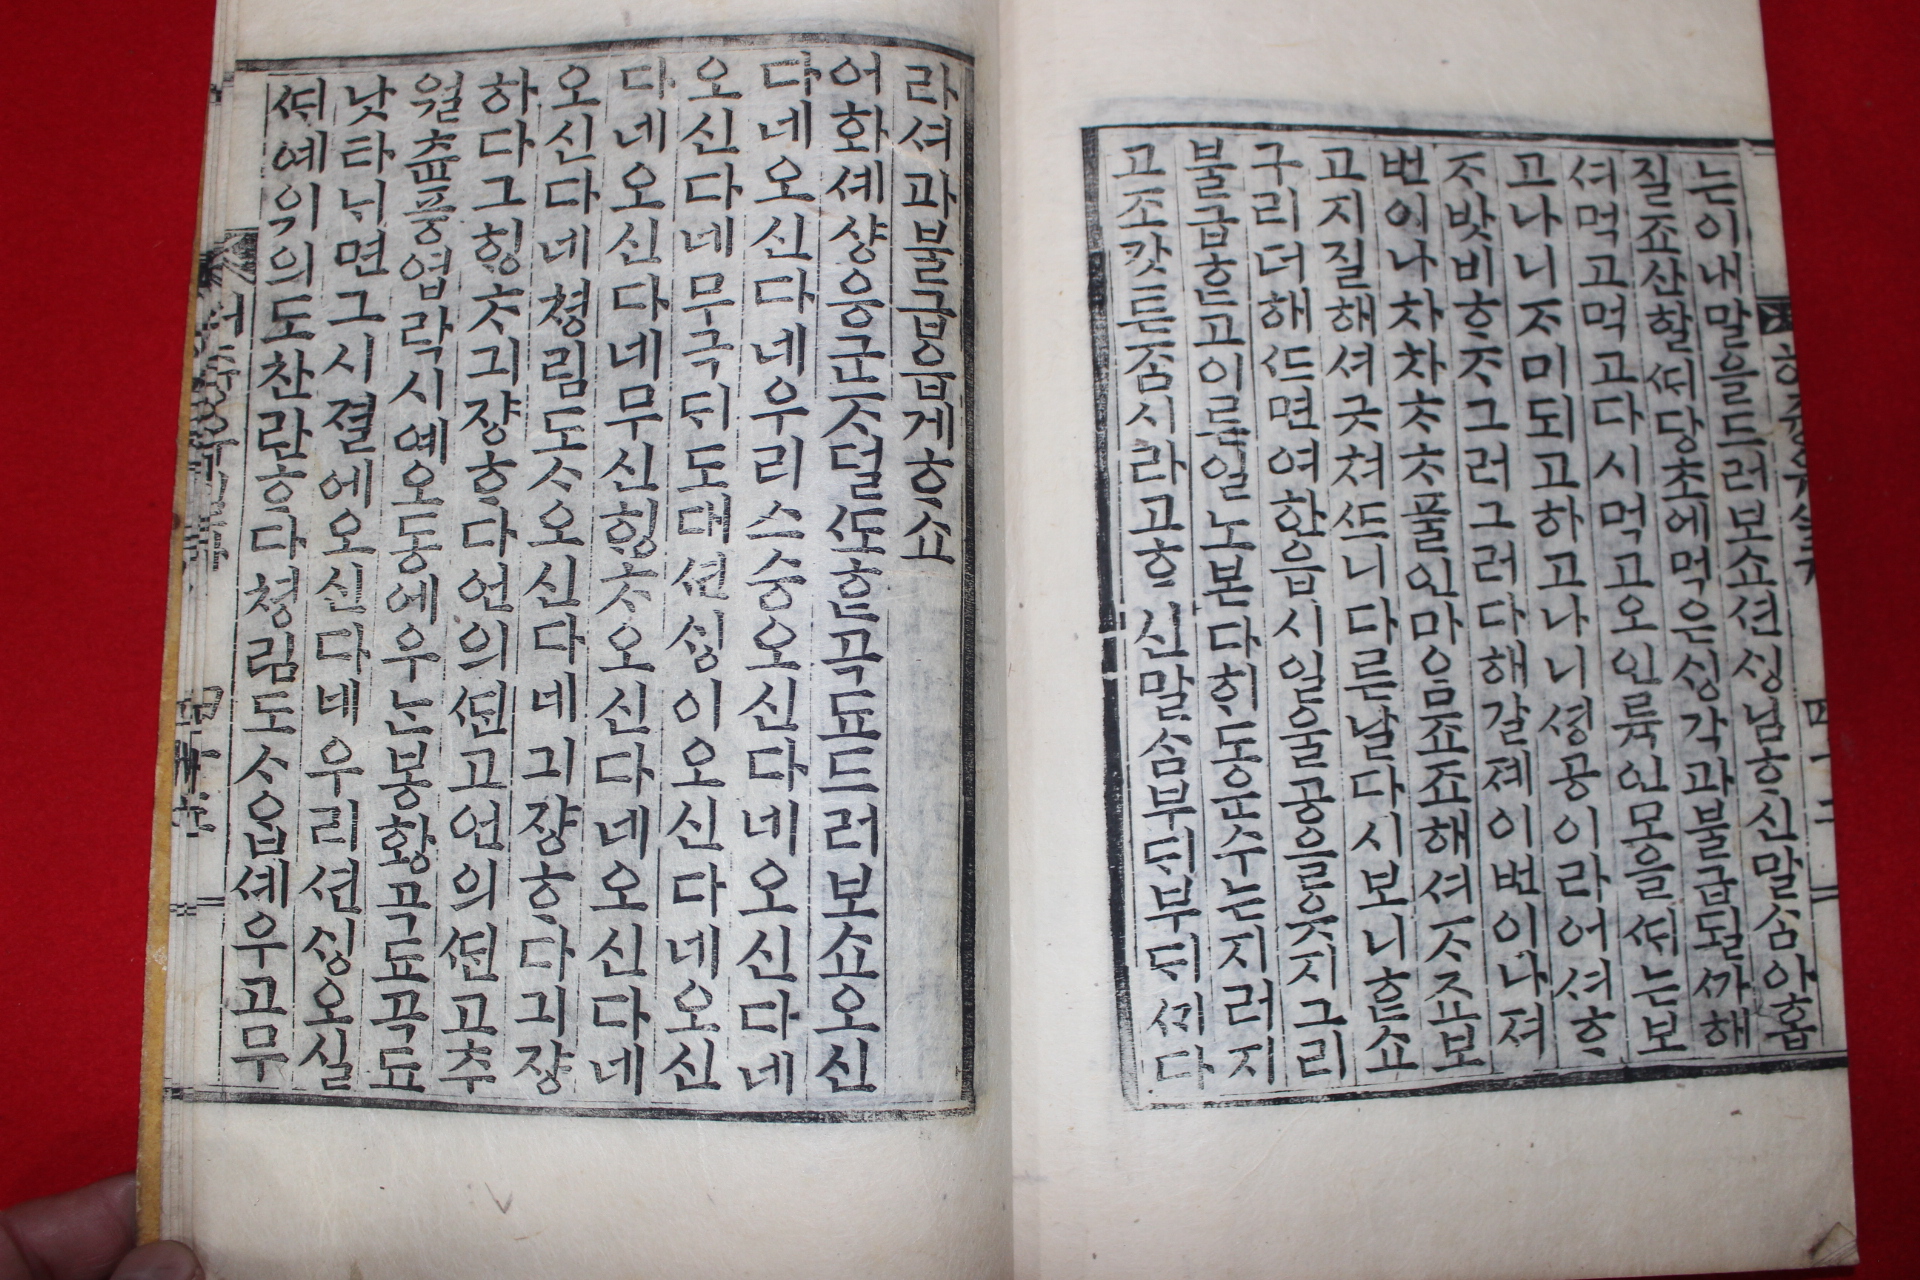 는이내말을드러보쇼션ᄉᆡᆼ님ᄒᆞ신말ᄉᆞᆷ아홉
질죠산할ᄯᅵ당초에먹은ᄉᆡᆼ각과불급될ᄭᅡ해
셔먹고먹고다시먹고오인륙인모을ᄯᅵ는보
고나니ᄌᆞ미되고하고나니셩공이라어셔ᄒᆞ
ᄌᆞ밧비ᄒᆞᄌᆞ그러그러다해갈졔이번이나져
번이나차차ᄎᆞᄎᆞ풀인마음죠죠해셔ᄌᆞ죠보
고지질해셔긋쳐ᄯᅳ니다른날다시보니ᄒᆞᆫ쇼
구리더해ᄯᅳ면여한읍시일울공을ᄋᆞ지그리
불급ᄒᆞᆫ고이른일노본다ᄒᆡ도운수는지러지
고조캇튼ᄌᆞᆷ시라고ᄒᆞ신말ᄉᆞᆷ부ᄃᆡ부ᄃᆡᄭᆡ다
라셔과불급읍게ᄒᆞ쇼
어화셰샹응군ᄌᆞ덜ᄯᅩᄒᆞᆫ곡됴드러보쇼오신
다네오신다네우리스승오신다네오신다네
오신다네무극ᄃᆡ도대션ᄉᆡᆼ이오신다네오신
다네오신다네무신ᄒᆡᆼᄎᆞ오신다네오신다네
오신다네쳥림도ᄉᆞ오신다네긔쟝ᄒᆞ다긔쟝
하다그ᄒᆡᆼᄎᆞ긔쟝ᄒᆞ다언의ᄯᅥᆫ고언의ᄯᅥᆫ고추
월츈풍엽락시예오동에우는봉황곡됴곡됴
낫타ᄂᆡ면그시졀에오신다네우리션ᄉᆡᆼ오실
ᄯᅵ예위의도찬란ᄒᆞ다쳥림도ᄉᆞ압셰우고무